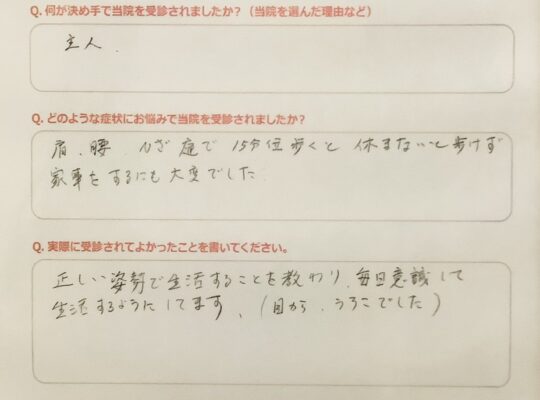 Q. 何が決め手で当院を受診されましたか?（当院を選んだ理由など）
主人.
Q. どのような症状にお悩みで当院を受診されましたか?
肩、腰、ひざ 痛で 15分位歩くと 休まないと歩けず
家事をするにも大変でした
Q. 実際に受診されてよかったことを書いてください。
正しい姿勢で生活することを教わり、毎日意識して
生活するようにしてます、(目から、うろこでした)